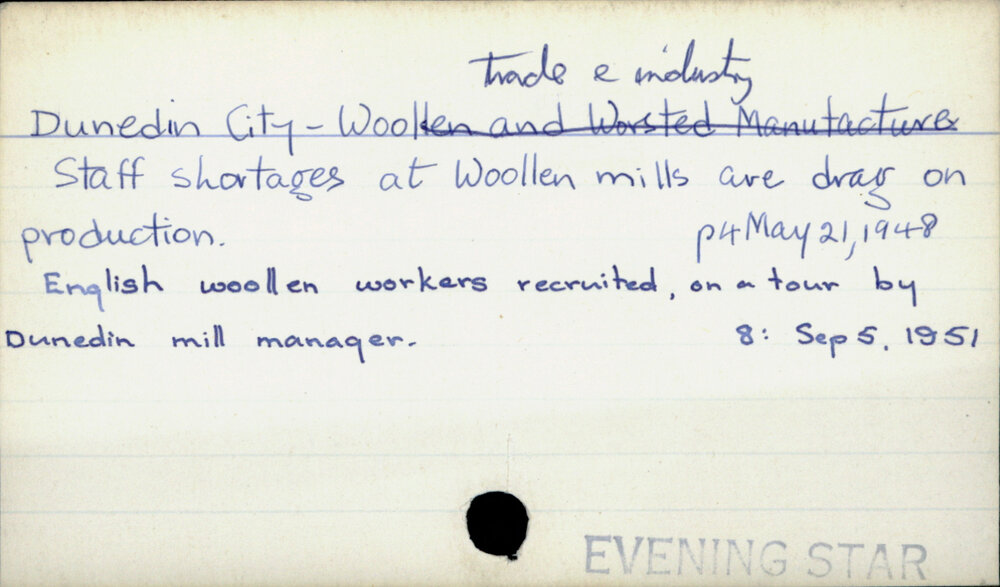 trade & industry
Dunedin City - Woollen and Worsted Manufacture
Staff shortages at Woollen mills are drag on
production. p4 May 21, 1948
English woollen workers recruited, on a tour by
Dunedin mill manager. 8: Sep 5, 1951
EVENING STAR